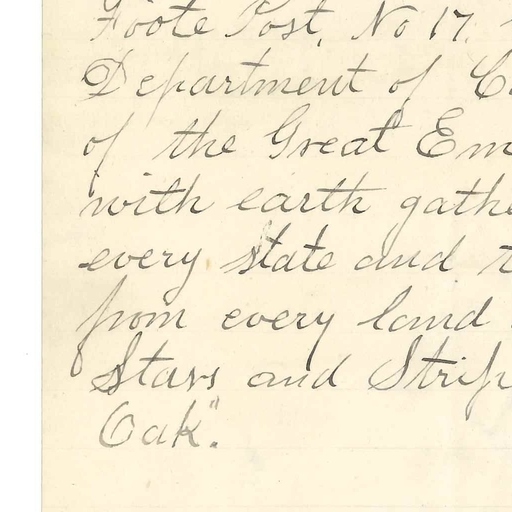 Foote Post, No 17.
Department of C
of the Great Em
with earth gathe
every state and t
from every land
Stars and Strip
Oak".